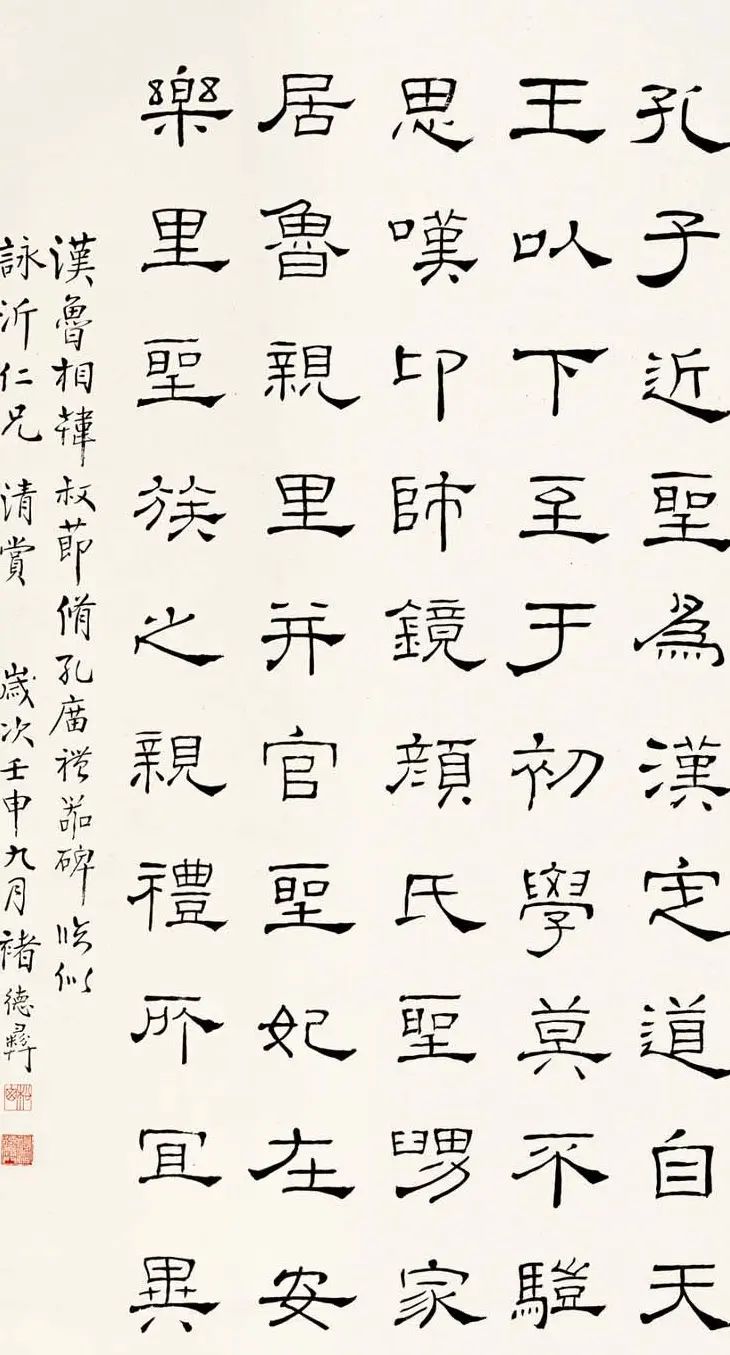 孔子近聖爲漢定道自天
王以下至于初學莫不驥
思嘆卬師鏡顏氏聖舅家
居魯親里并官聖妃在安
樂里聖族之親禮所宜異
漢魯相韓叔節脩孔庿禮器碑 臨似
詠沂仁兄 清賞 歲次壬申九月 褚德彝